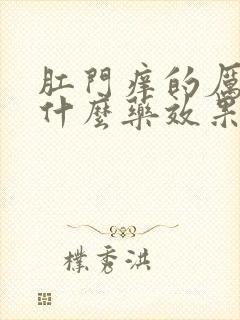 肛門痒的厲
什麼藥效果
樸秀洪